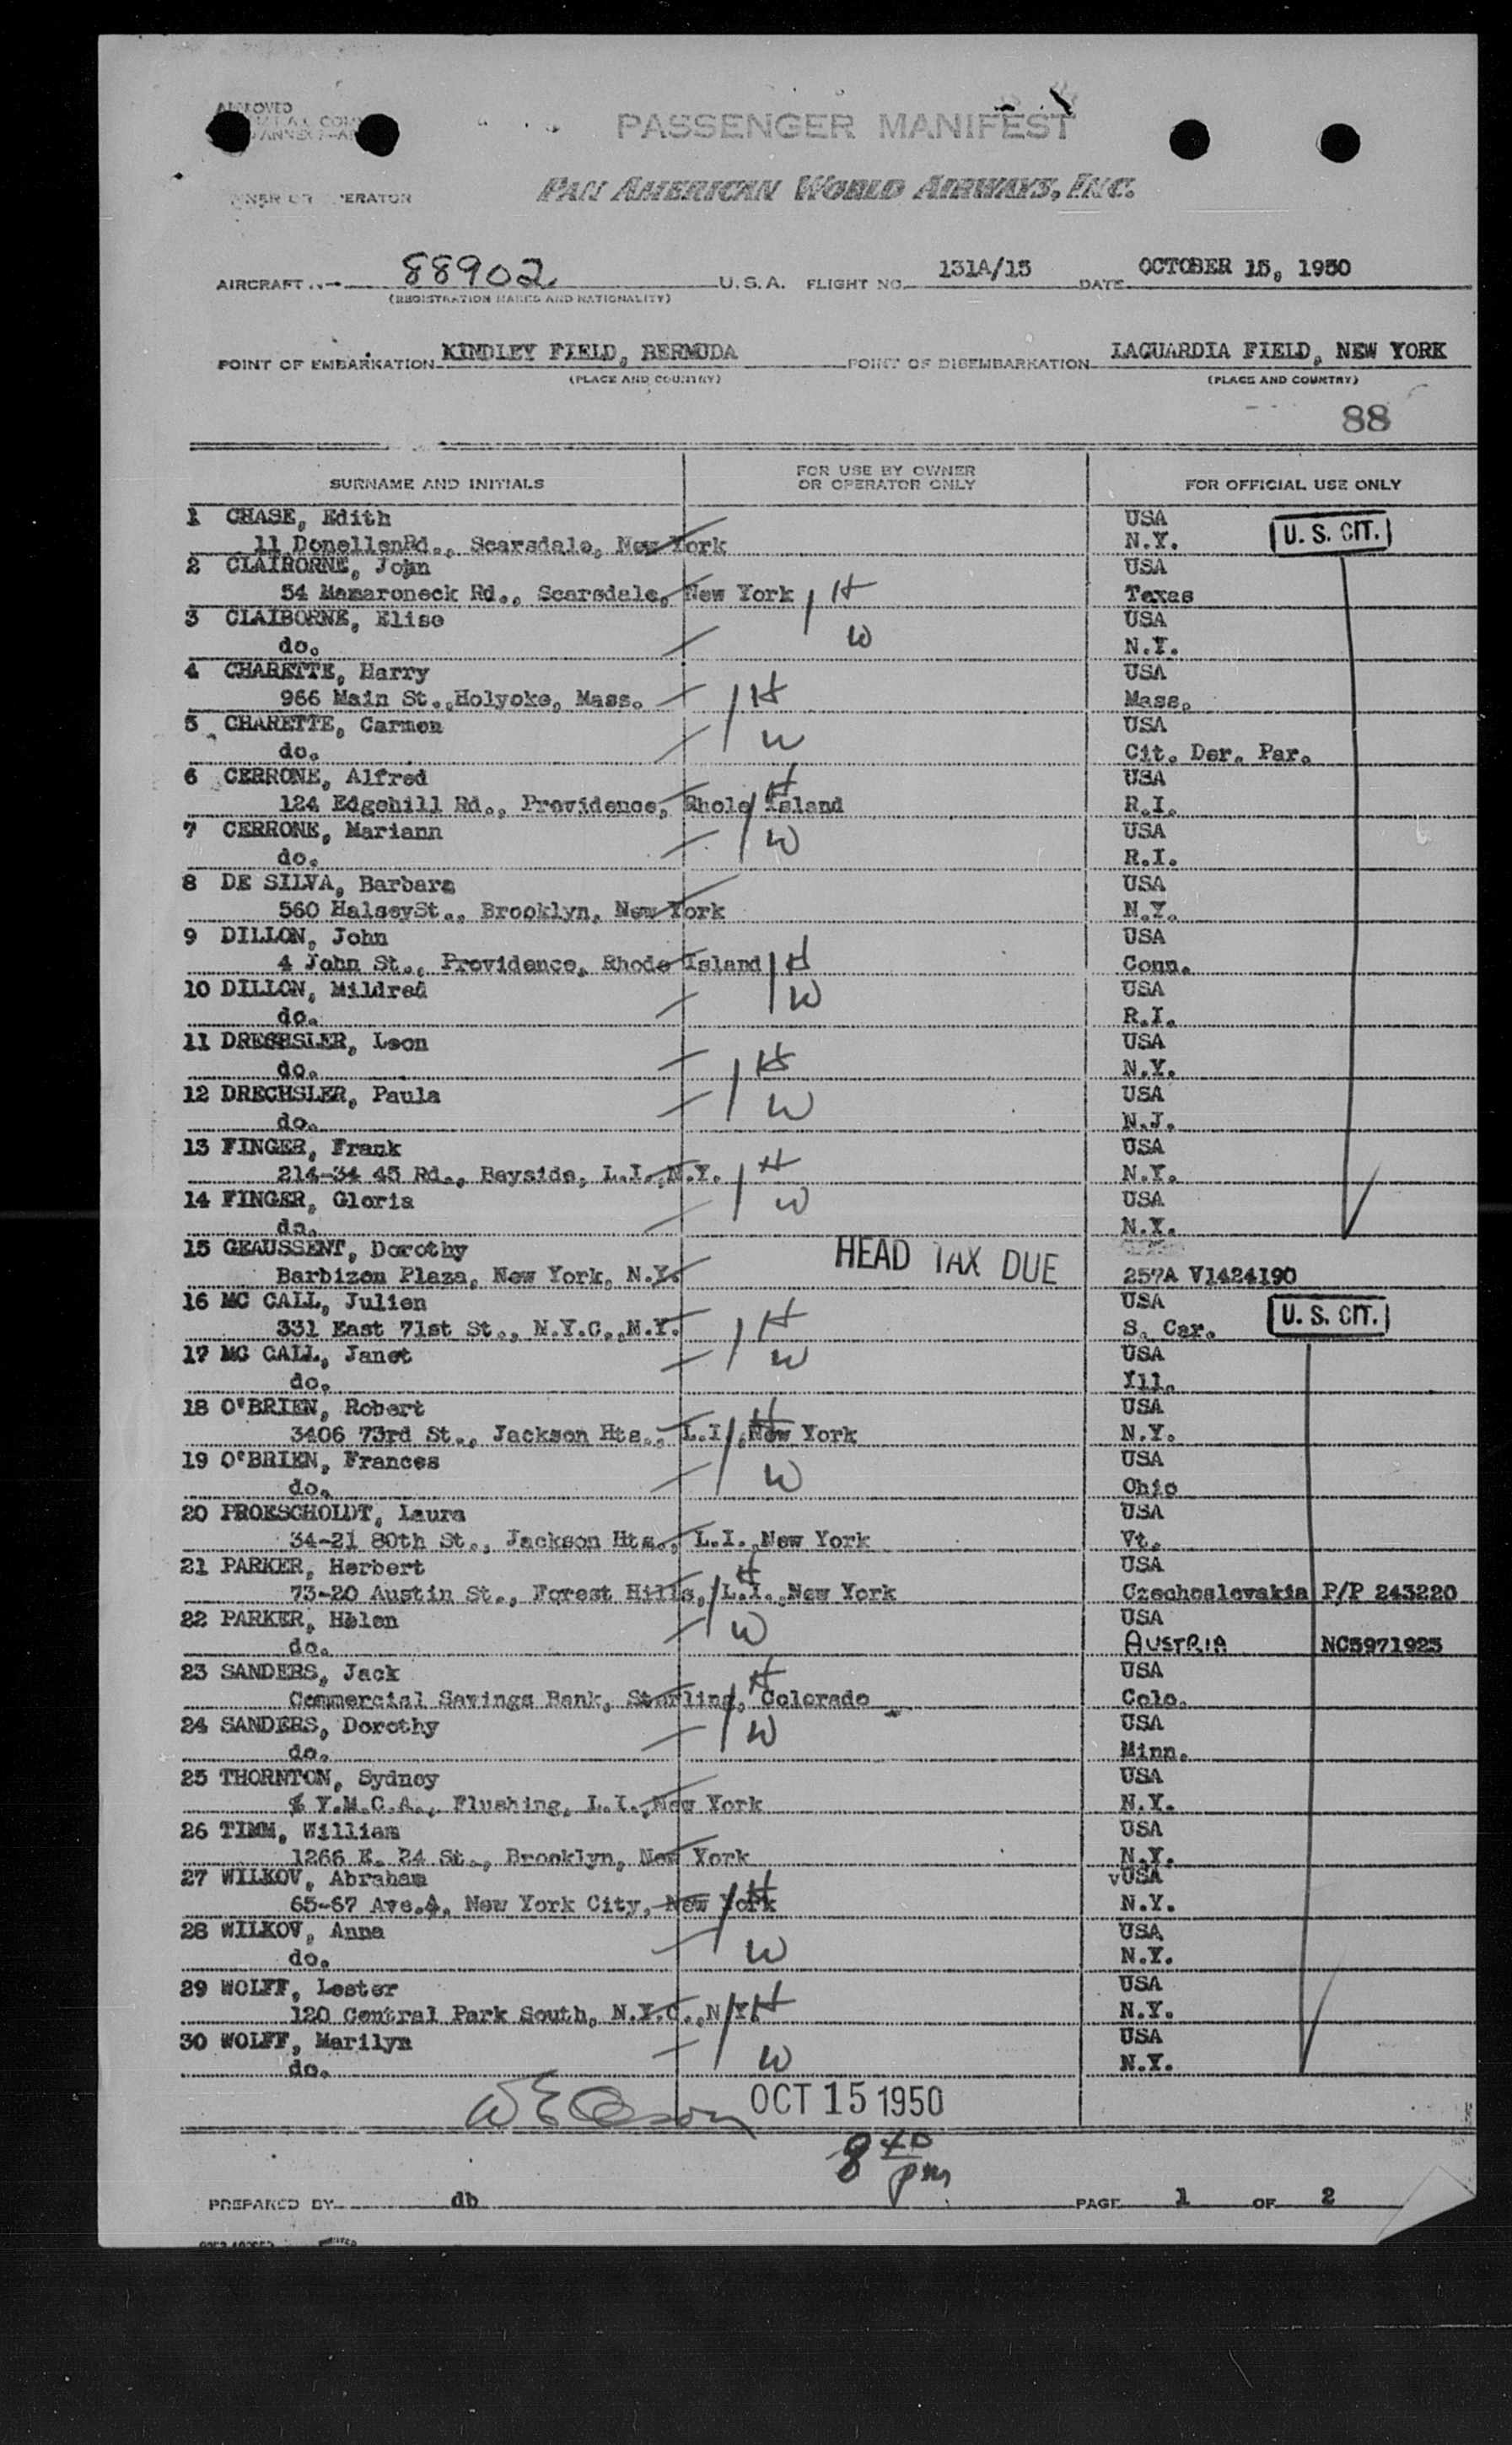 APPROVED
PASSENGER MANIFEST
PAN AMERICAN WORLD AIRWAYS, INC.
AIRCRAFT 88902 U.S.A. FLIGHT NO. 131A/15 DATE OCTOBER 15, 1950
(REGISTRATION MARKS AND NATIONALITY)
POINT OF EMBARKATION KINDLEY FIELD, BERMUDA POINT OF DISEMBARKATION LAGUARDIA FIELD, NEW YORK
(PLACE AND COUNTRY) (PLACE AND COUNTRY)
88
SURNAME AND INITIALS FOR USE BY OWNER OR OPERATOR ONLY FOR OFFICIAL USE ONLY
1 CHASE, Edith USA
11 DonellenRd., Scarsdale, New York N.Y. U. S. CIT.
2 CLAIBORNE, John USA
54 Mamaroneck Rd., Scarsdale, New York H Texas
3 CLAIBORNE, Elise USA
do. W N.Y.
4 CHARETTE, Harry USA
966 Main St.,Holyoke, Mass. H Mass.
5 CHARETTE, Carmen USA
do. W Cit. Der. Par.
6 CERRONE, Alfred H USA
124 Edgehill Rd., Providence, Rhole Island R.I.
7 CERRONE, Mariann USA
do. W R.I.
8 DE SILVA, Barbara USA
560 HalseySt., Brooklyn, New York N.Y.
9 DILLON, John USA
4 John St., Providence, Rhode Island H Conn.
10 DILLON, Mildred USA
do. W R.I.
11 DRECHSLER, Leon USA
do. H N.Y.
12 DRECHSLER, Paula USA
do. W N.J.
13 FINGER, Frank USA
214-34 45 Rd., Bayside, L.I.,N.Y. H N.Y.
14 FINGER, Gloria USA
do. W N.Y.
15 GEAUSSENT, Dorothy HEAD TAX DUE
Barbizon Plaza, New York, N.Y. 257A V1424190
16 MC CALL, Julien USA
331 East 71st St., N.Y.C.,N.Y. H S. Car. U. S. CIT.
17 MC CALL, Janet USA
do. W Ill.
18 O'BRIEN, Robert H USA
3406 73rd St., Jackson Hts., L.I.,New York N.Y.
19 O'BRIEN, Frances USA
do. W Ohio
20 PROESCHOLDT, Laura USA
34-21 80th St., Jackson Hts., L.I.,New York Vt.
21 PARKER, Herbert H USA
73-20 Austin St., Forest Hills, L.I.,New York Czechoslovakia P/P 243220
22 PARKER, Helen USA
do. W AUSTRIA NC5971925
23 SANDERS, Jack H USA
Commercial Savings Bank, Sterling, Colorado Colo.
24 SANDERS, Dorothy USA
do. W Minn.
25 THORNTON, Sydney USA
% Y.M.C.A., Flushing, L.I.,New York N.Y.
26 TIMM, William USA
1266 E. 24 St., Brooklyn, New York N.Y.
27 WILKOV, Abraham H vUSA
65-67 Ave.A, New York City, New York N.Y.
28 WILKOV, Anna USA
do. W N.Y.
29 WOLFF, Lester USA
120 Central Park South, N.Y.C.,N.Y. H N.Y.
30 WOLFF, Marilyn USA
do. W N.Y.
OCT 15 1950
8 40 pm
PREPARED BY db PAGE 1 OF 2